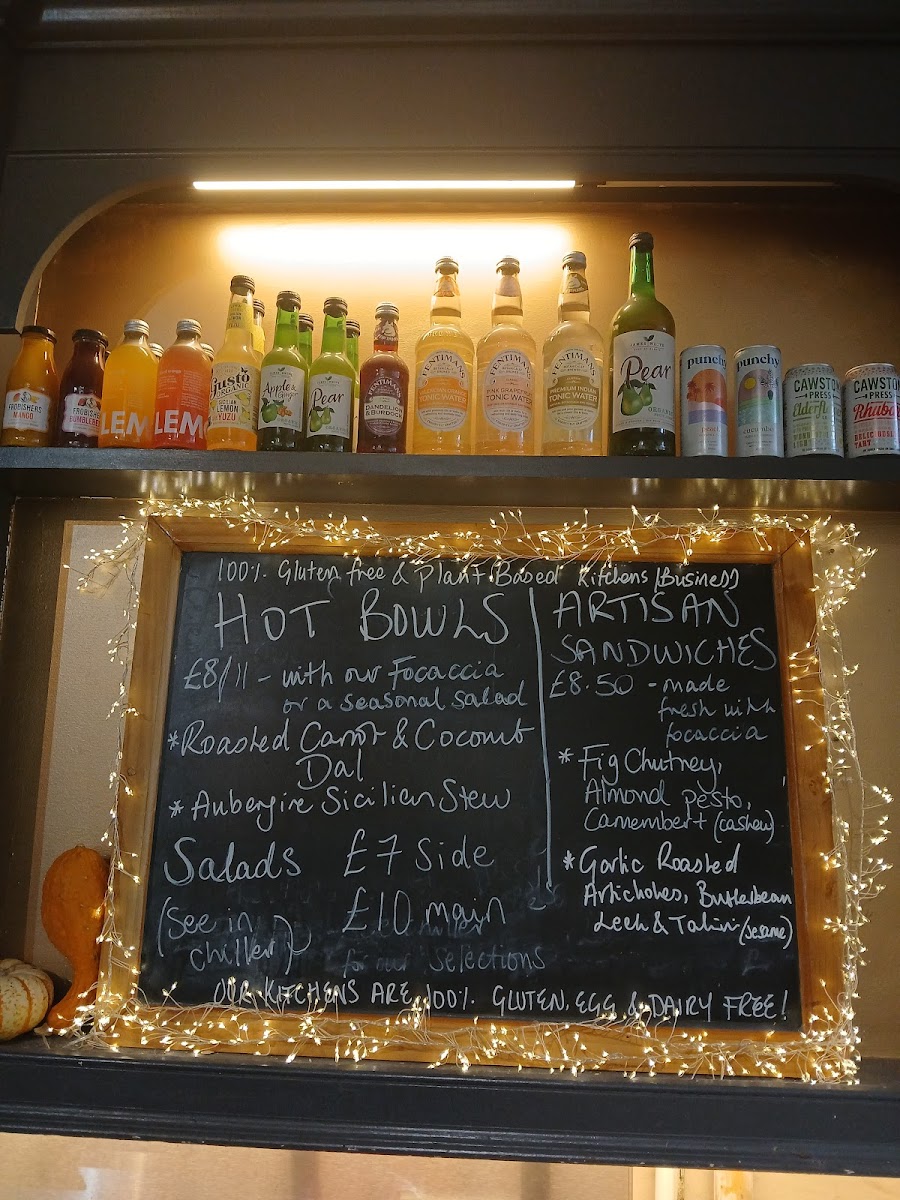 FROBISHERS
MANGO
FROBISHERS
BUMBLEBERRY
LEM
LEM
Gusto
ORGANIC
LEMON
YUZU
Apple &
Pear
FENTIMANS
DANDELION
& BURDOCK
FENTIMANS
TONIC WATER
FENTIMANS
PINK GRAPEFRUIT
TONIC WATER
FENTIMANS
PREMIUM INDIAN
TONIC WATER
Pear
ORGANIC
punchy
peach
punchy
cucumber
CAWSTON
PRESS
Elderfl
CAWSTON
PRESS
Rhuba
DELICIOUSLY
TART
100% Gluten free & Plant Based Kitchens (Business)
HOT BOWLS
£8/11 - with our Focaccia
or a seasonal salad
*Roasted Carrot & Coconut
Dal
* Aubergine Sicilian Stew
Salads £7 Side
(See in £10 main
chiller)
for our Selections
ARTISAN
SANDWICHES
£8.50 - made
fresh with
focaccia
* Fig Chutney,
Almond pesto,
Camembert (cashew)
* Garlic Roasted
Artichokes, Butterbean
Leek & Tahini (sesame)
OUR KITCHENS ARE 100% GLUTEN, EGG & DAIRY FREE!